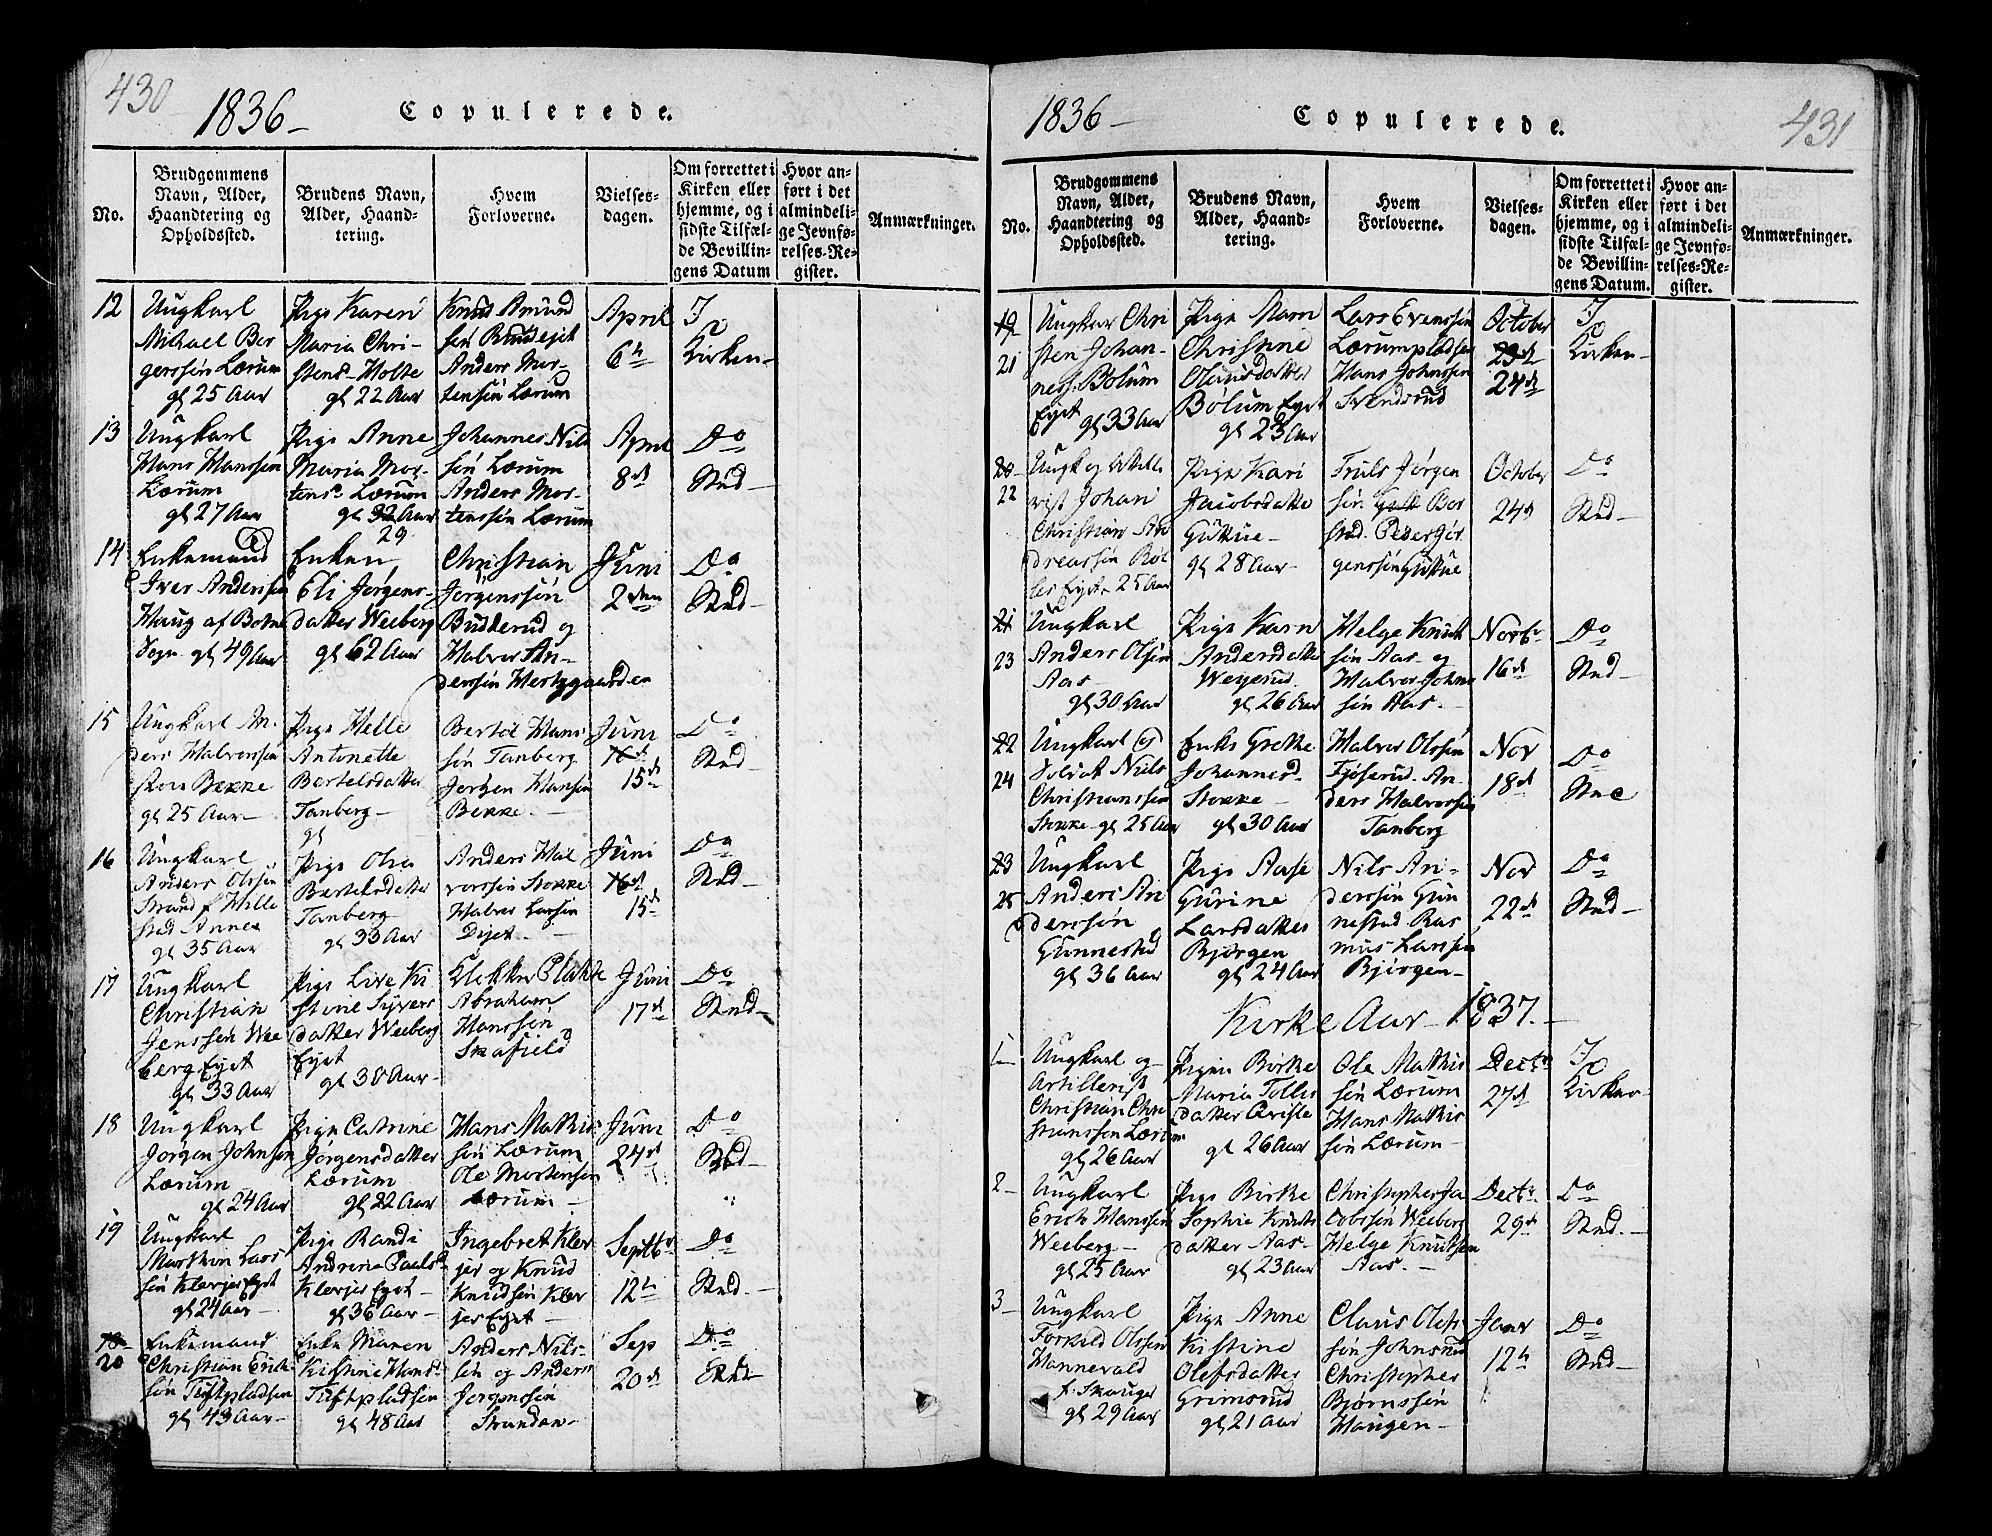 430
1836 –
Copulerede.
No.
Brudgommens Navn, Alder, Haandtering og Opholdssted.
Brudens Navn, Alder, Haandtering.
Hvem Forloverne.
Vielsesdagen.
Om forrettet i Kirken eller hjemme, og i sidste Tilfælde Bevillingens Datum
Hvor anført i det almindelige Jevnførelses-Register.
Anmærkninger.
12
Ungkarl
Mikael Ber
gerssön Lærum
gl 25 Aar
Pige Karen
Maria Chri-
stensd Holte
gl 22 Aar
Knud Amund
sön
Anders Mor-
tensön Lærum
April
6te
I
Kirken –
13
Ungkarl
Hans Hanssön
Lærum
gl 27 Aar
Pige Anne
Maria Mor-
tensd. Lærum
gl 32 Aar
29
Johannes Nils
sön Lærum
Anders Mor-
tenssön Lærum
April
8de
Do
Sted –
14
Enkemand
Iver Anderssön
Haug af Botne
Sogn gl 49 Aar
Enken
Eli Jörgens-
datter Weeberg
gl 62 Aar
Christian
Jörgenssön
Budderud og
Halvor An-
derssön Hertzgaarden
Juni
2den
Do
Sted –
15
Ungkarl An-
ders Halvorssön
Bekke
gl 25 Aar –
Pige Helle
Antonette
Bertelsdatter
Tanberg –
gl
Bertel Hans
sön Tanberg
Jörgen Hansön
Bekke. –
Juni
16de
15de
Do
Sted
16
Ungkarl
Anders Olssön
Strand f Hille
sted Annex
gl 35 Aar
Pige Olea
Bertelsdatter
Tanberg –
gl 33 Aar
Anders Hal
vorssön Stokke
Halvor Larssön
Dejet –
Juni
16de
15de
Do
Sted –
17
Ungkarl
Christian
Jenssön Wee
berg Ejet
gl 33 Aar
Pige Live Ki
stine Syvers
datter Weeberg
Ejet
gl 30 Aar –
Klokker Plahte
Abraham
Hanssön
Skafjeld
Juni
17de
Do
Sted –
18
Ungkarl
Jörgen Johnsen
Lærum
gl 24 Aar
Pige Catrine
Jörgensdatter
Lærum
gl 22 Aar
Hans Mathis
sön Lærum
Ole Mortensön
Lærum –
Juni
24de
Do
Sted –
19
Ungkarl
Marthin Lars
sön Klevjer Ejet
gl 24 Aar –
Pige Randi
Andrine Paulsd
Klevjer Ejet –
gl 36 Aar –
Ingebret Klev
jer og Knud
Knudsön Klev
jer Ejet –
Septbr
12te
Do
Sted –
20
Enkemand
Christian Erik
sön Tuftpladsen
gl 43 Aar –
Enke Maren
Kistine Hansd
Tuftpladsen
gl 48 Aar
Anders Nils-
sön og Anders
Jörgenssön
Strandan –
Sep
20de
Do
Sted –
1836 –
Copulerede.
431
No.
Brudgommens Navn, Alder, Haandtering og Opholdssted.
Brudens Navn, Alder, Haandtering.
Hvem Forloverne.
Vielsesdagen.
Om forrettet i Kirken eller hjemme, og i sidste Tilfælde Bevillingens Datum.
Hvor anført i det almindelige Jevnførelses-Register.
Anmærkninger.
19
21
Ungkar Chri
sten Johan-
ness. Bolum
Ejet gl 33 Aar
Pige Marn
Christine
Olausdatter
Bölum Ejet
gl 23 Aar
Lars Evenssön
Lærumpladsen
Hans Johnssön
Svendsrud
October
23de
24de
I
Kirken –
20
22
Ungk og Artille
rist Johan
Christian An
dreassön Röl
les Ejet, 25 Aar
Pige Kari
Jacobsdatter
Gutue –
gl 28 Aar –
Truls Jörgen
sön. Ber
stad. Peder Jör
genssön Gutue
October
24de
Do
Sted –
21
23
Ungkarl
Anders Olsön
Aas –
gl 30 Aar
Pige Karn
Andersdatter
Weyerud
gl 26 Aar
Helge Knud
sön Aas – og
Halvor Johns
sön Aas –
Novbr
16de
Do
Sted –
22
24
Ungkarl og
Soldat Niels
Christianssön
Stokke – gl 25 Aar
Enke Grethe
Johannesd
Stokke –
gl 30 Aar
Halvor Olssön
Fjöserud – An-
ders Halvorsön
Tanberg
Nov
18de
Do
Sted
23
25
Ungkarl
Anders An
derssön
Gunnestad
gl 36 Aar
Pige Aase
Gurine
Larsdatter
Björgen
gl 24 Aar
Nils An-
derssön Gun
nestad Ras
mus Larssön
Björgen –
Nov
22de
Do
Sted –
Kirke Aar – 1837. –
1 –
Ungkarl og
Artillerist
Christian Chri
stianssön Lærum
gl 26 Aar
Pigen Birke
Maria Tolles
datter
gl 26 Aar
Ole Mathis
sön Lærum
Hans Mathis
sön Lærum –
Decbr
27de
I
Kirken –
2 –
Ungkarl
Erich Hanssön
Weeberg –
gl 25 Aar
Pige Birke
Sophie Knuds
datter Aas –
gl 23 Aar
Christopher Ja
cobssön Weeberg
Helge Knutsen
Aas. –
Decbr
29de
Do
Sted –
3 –
Ungkarl
Torkild Olssön
Hannevold
f. Skauger
gl 29 Aar
Pige Anne
Kistine
Olefsdatter
Grimsrud
gl 21 Aar
Claus Olefs
sön Johnsrud
Christopher
Björnssön
Haugen –
Janr
12te
Do
Sted –